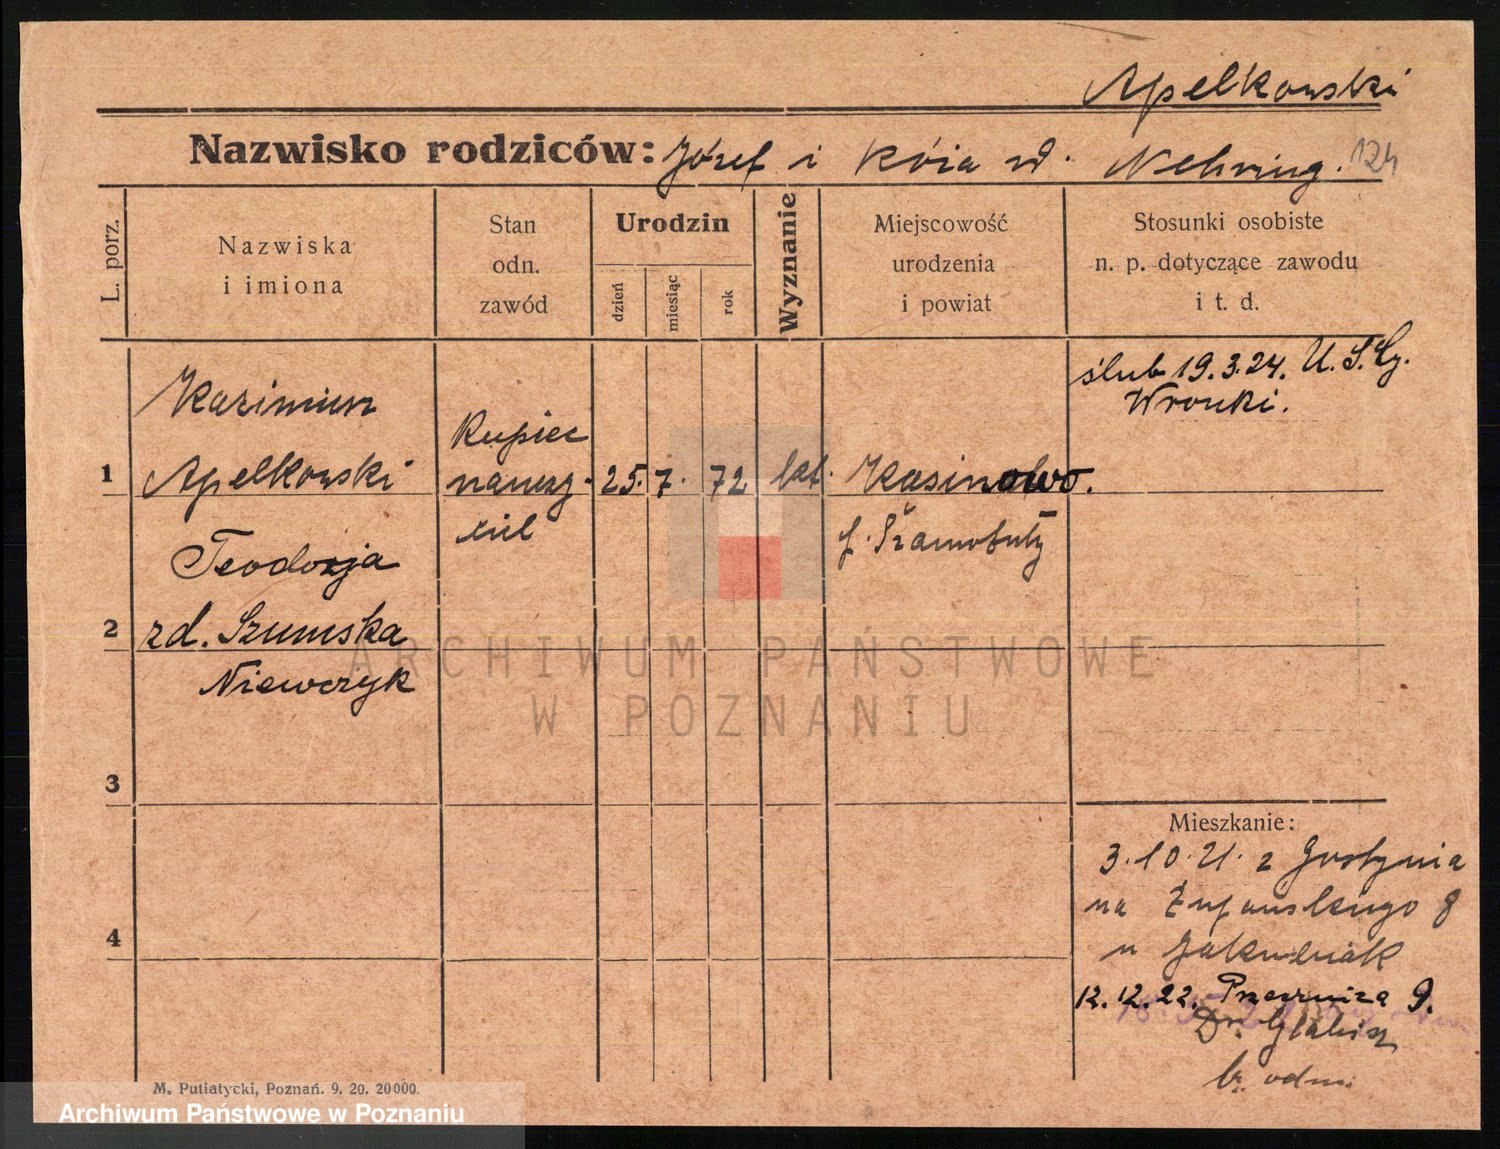 Apelkowski
Nazwisko rodziców: Józef i Róża zd. Nehring. 124
L. porz.
Nazwiska
i imiona
Stan
odn.
zawód
Urodzin
dzień
miesiąc
rok
Wyznanie
Miejscowość
urodzenia
i powiat
Stosunki osobiste
n. p. dotyczące zawodu
i t. d.
1
Kazimierz
Apelkowski
Kupiec
25. 7. 72
kat.
Kasinowo.
p. Szamotuły
ślub 19.3.24. U. S. Cy.
Wronki.
2
Teodozja
zd. Szumska
Niewczyk
3
4
Mieszkanie:
3.10.21. z Gostynia
na Żupańskiego 8
u Jakubiak
12.12.22. Przecznica 9.
Dr. Glabisz
M. Putiatycki, Poznań. 9. 20. 20000.
ARCHIWUM PAŃSTWOWE
W POZNANIU
Archiwum Państwowe w Poznaniu